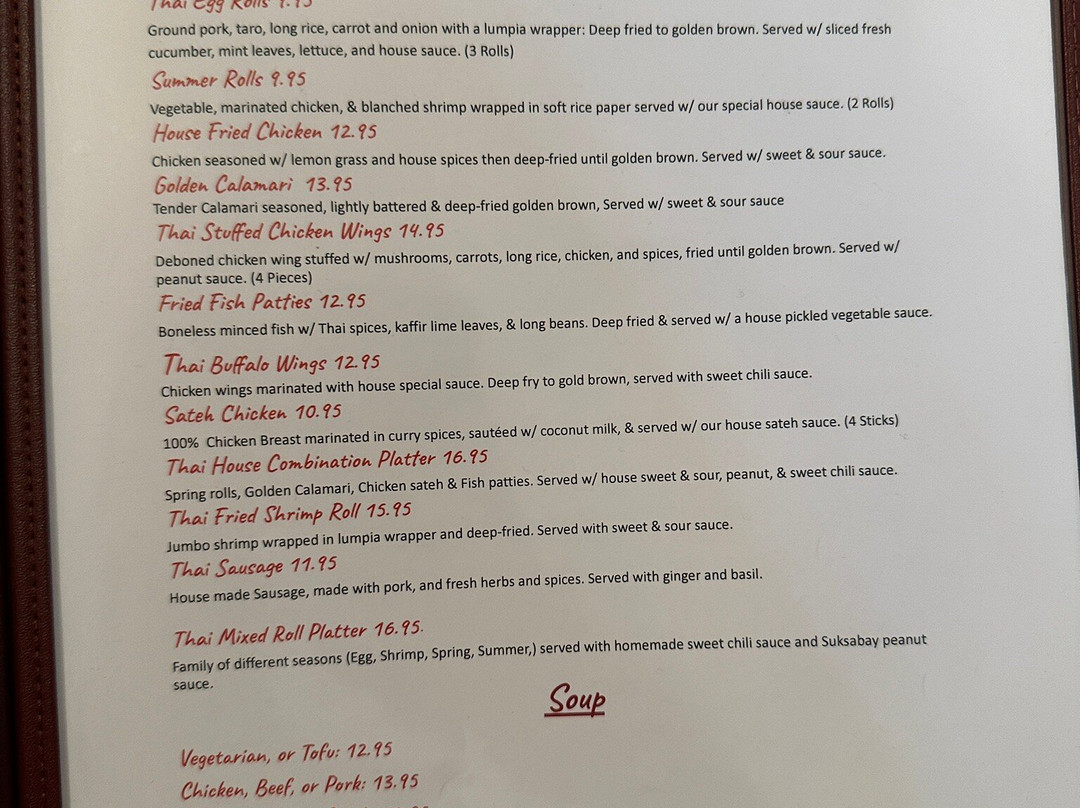 Thai Egg Rolls
Ground pork, taro, long rice, carrot and onion with a lumpia wrapper: Deep fried to golden brown. Served w/ sliced fresh
cucumber, mint leaves, lettuce, and house sauce. (3 Rolls)
Summer Rolls 9.95
Vegetable, marinated chicken, & blanched shrimp wrapped in soft rice paper served w/ our special house sauce. (2 Rolls)
House Fried Chicken 12.95
Chicken seasoned w/ lemon grass and house spices then deep-fried until golden brown. Served w/ sweet & sour sauce.
Golden Calamari 13.95
Tender Calamari seasoned, lightly battered & deep-fried golden brown, Served w/ sweet & sour sauce
Thai Stuffed Chicken Wings 14.95
Deboned chicken wing stuffed w/ mushrooms, carrots, long rice, chicken, and spices, fried until golden brown. Served w/
peanut sauce. (4 Pieces)
Fried Fish Patties 12.95
Boneless minced fish w/ Thai spices, kaffir lime leaves, & long beans. Deep fried & served w/ a house pickled vegetable sauce.
Thai Buffalo Wings 12.95
Chicken wings marinated with house special sauce. Deep fry to gold brown, served with sweet chili sauce.
Sateh Chicken 10.95
100% Chicken Breast marinated in curry spices, sautéed w/ coconut milk, & served w/ our house sateh sauce. (4 Sticks)
Thai House Combination Platter 16.95
Spring rolls, Golden Calamari, Chicken sateh & Fish patties. Served w/ house sweet & sour, peanut, & sweet chili sauce.
Thai Fried Shrimp Roll 15.95
Jumbo shrimp wrapped in lumpia wrapper and deep-fried. Served with sweet & sour sauce.
Thai Sausage 11.95
House made Sausage, made with pork, and fresh herbs and spices. Served with ginger and basil.
Thai Mixed Roll Platter 16.95.
Family of different seasons (Egg, Shrimp, Spring, Summer,) served with homemade sweet chili sauce and Suksabay peanut
sauce.
Soup
Vegetarian, or Tofu: 12.95
Chicken, Beef, or Pork: 13.95